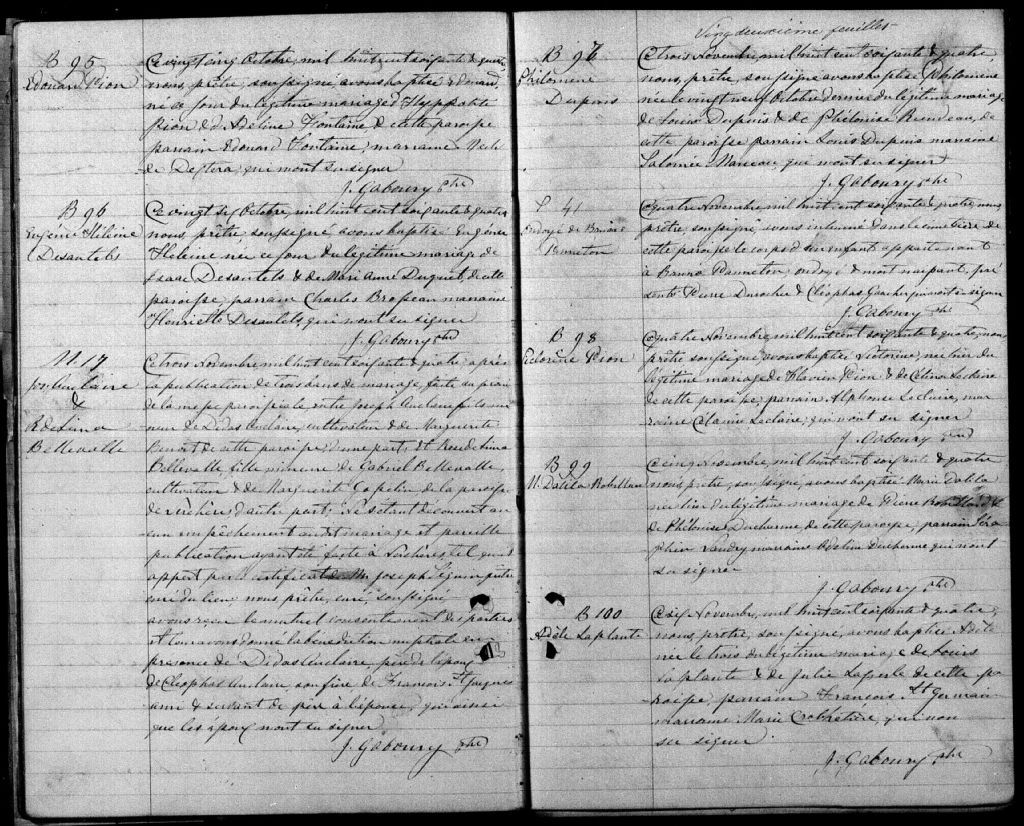 B 95
Edouard Pion
Ce vingt cinq Octobre, mil huit cent soixante & quatre
nous, prêtre, soussigné, avons baptisé Edouard,
né ce jour du légitime mariage d'Hyppolite
Pion & d'Adeline Fontaine de cette paroisse
parrain Edouard Fontaine, marraine
qui n'ont su signer
J. Gaboury ptre
B 96
Eugénie Hélène
Desautels
Ce vingt six Octobre, mil huit cent soixante & quatre
nous prêtre, soussigné avons baptisé Eugénie
Helène née ce jour du légitime mariage de
Isaac Desautels & de Marie Anne Duguet de cette
paroisse, parrain Charles Brosseau marraine
Henriette Desautels qui n'ont su signer
J. Gaboury ptre
M. 17
Jos. Auclaire
&
Bellevalle
Ce trois Novembre mil huit cent soixante & quatre, après
la publication de trois bans de mariage, faite au prône
de la messe paroissiale entre Joseph Auclaire fils mi
neur de Didas Auclaire, cultivateur & de Marguerite
Benoit de cette paroisse d'une part; Et
Bellevalle fille mineure de Gabriel Bellevalle,
cultivateur & de Marguerite de la paroisse
de d'autre part; Ne s'étant découvert au
cun empêchement au dit mariage et pareille
publication ayant été faite à tel qu'il
appert par le certificat de Mr Joseph Séguin prêtre
curé du lieu, nous, prêtre, curé, soussigné
avons reçu le mutuel consentement des parties
et leur avons donné la bénédiction nuptiale en
présence de Didas Auclaire, père de l'époux
de Cléophas Auclaire, son frère de François St Jacques
ami & servant de père à l'épouse, qui ainsi
que les époux n'ont su signer
J. Gaboury ptre
Vingt deuxième feuillet
B 97
Philomène
Dupuis
Ce trois Novembre mil huit cent soixante & quatre,
nous, prêtre, soussigné avons baptisé Philomène
née le vingt neuf Octobre dernier du légitime mariage
de Louis Dupuis & de Philomise de
cette paroisse parrain Louis Dupuis marraine
Salomée qui n'ont su signer
J. Gaboury ptre
S 41
Ondoyé de Bruno
Panneton
Ce quatre Novembre, mil huit cent soixante & quatre, nous
prêtre, soussigné, avons inhumé dans le cimetière de
cette paroisse le corps d'un enfant appartenant
à Bruno Panneton, ondoyé & mort naissant, pré
sents Pierre Durocher & Cléophas qui n'ont su signer
J. Gaboury ptre
B 98
Pion
Ce quatre Novembre, mil huit cent soixante & quatre, nous,
prêtre soussigné avons baptisé né hier du
légitime mariage de Flavien Pion & de Célina Leclaire
de cette paroisse; parrain Alphonse Leclaire, mar
raine Leclaire, qui n'ont su signer
J. Gaboury ptre
B 99
M. Dalila Robillard
Ce cinq Novembre, mil huit cent soixante & quatre
nous, prêtre, soussigné, avons baptisé Marie Dalila
née hier du légitime mariage de Pierre Robillard &
de Philomise Ducharme de cette paroisse, parrain Séra
phin Landry marraine Ducharme qui n'ont
su signer
J. Gaboury ptre
B 100
Adèle Laplante
Ce six Novembre, mil huit cent soixante & quatre,
nous, prêtre, soussigné, avons baptisé Adèle
née le trois du légitime mariage de Louis
Laplante & de Julie de cette pa
roisse parrain François St Germain
marraine Marie qui n'ont
su signer
J. Gaboury ptre